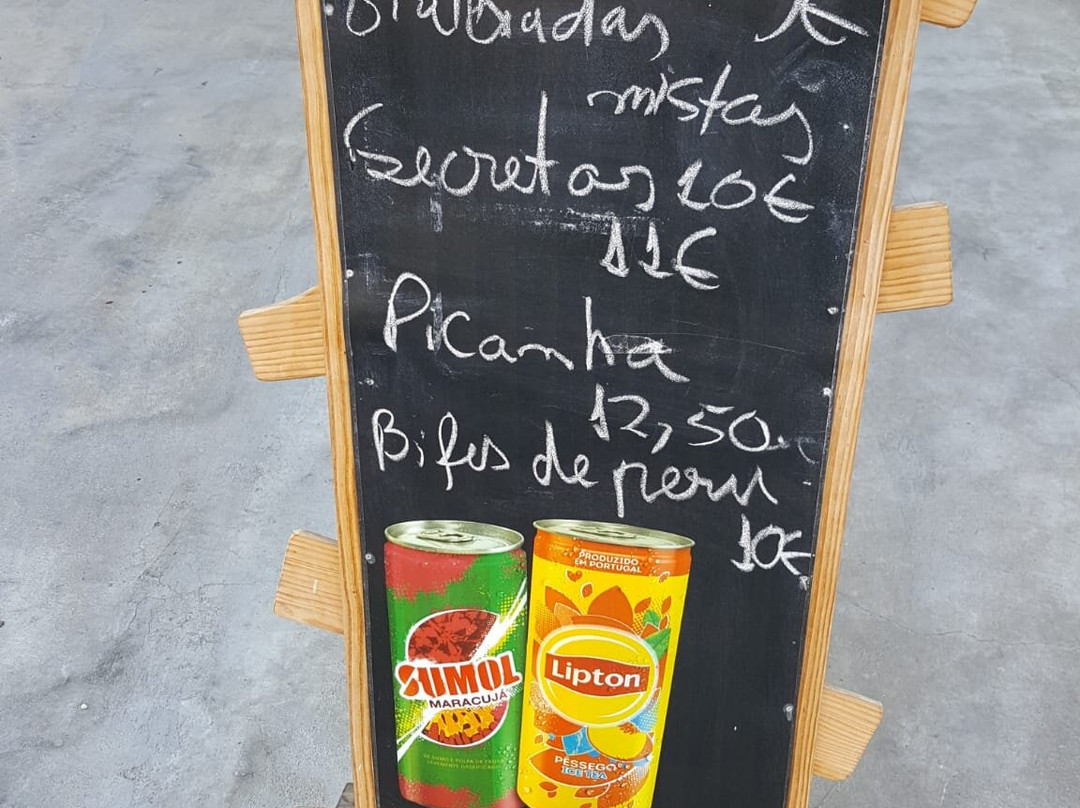 mistas
Secretos 10€
11€
Picanha
12,50
Bifes de peru
10€
PRODUZIDO
EM PORTUGAL
SUMOL
MARACUJÁ
Lipton
PÊSSEGO
ICE TEA